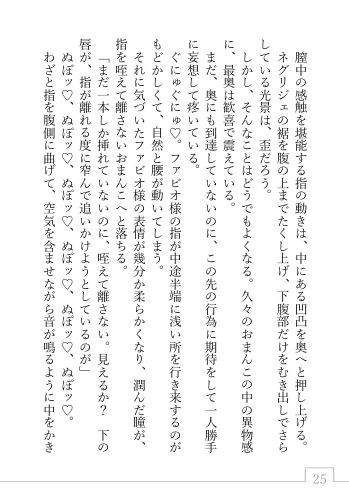 膣中の感触を堪能する指の動きは、中にある凹凸を奥へと押し上げる。
ネグリジェの裾を腹の上までたくし上げ、下腹部だけをむき出しでさら
している光景は、歪だろう。
しかし、そんなことはどうでもよくなる。久々のおまんこの中の異物感
に、最奥は歓喜で震えている。
まだ、奥にも到達していないのに、この先の行為に期待をして一人勝手
に妄想して疼いている。
ぐにゅぐにゅ♡。ファビオ様の指が中途半端に浅い所を行き来するのが
もどかしくて、自然と腰が動いてしまう。
それに気づいたファビオ様の表情が幾分か柔らかくなり、潤んだ瞳が、
指を咥えて離さないおまんこへと落ちる。
「まだ一本しか挿れていないのに、咥えて離さない。見えるか？　下の
唇が、指が離れる度に窄んで追いかけようとしているのが」
ぬぽッ♡、ぬぽッ♡、ぬぽッ♡、ぬぽッ♡。
わざと指を腹側に曲げて、空気を含ませながら音が鳴るように中をかき
25